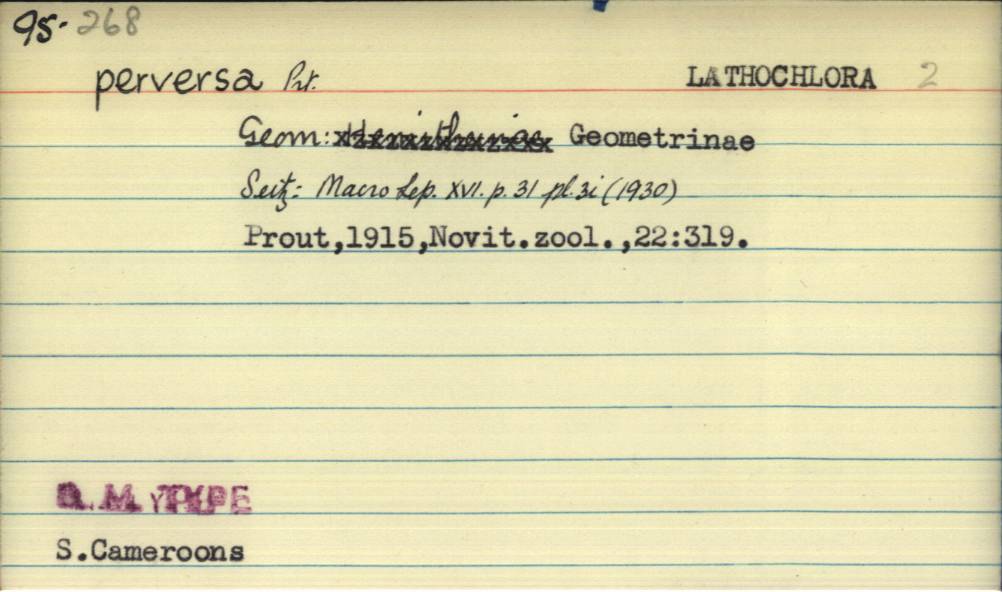 95. 268
perversa Prt. LATHOCHLORA 2
Geom: Hemitheinae Geometrinae
Seitz: Macro Lep. XVI. p. 31 pl. 3i (1930)
Prout,1915,Novit.zool.,22:319.
B. M. TYPE
S.Cameroons